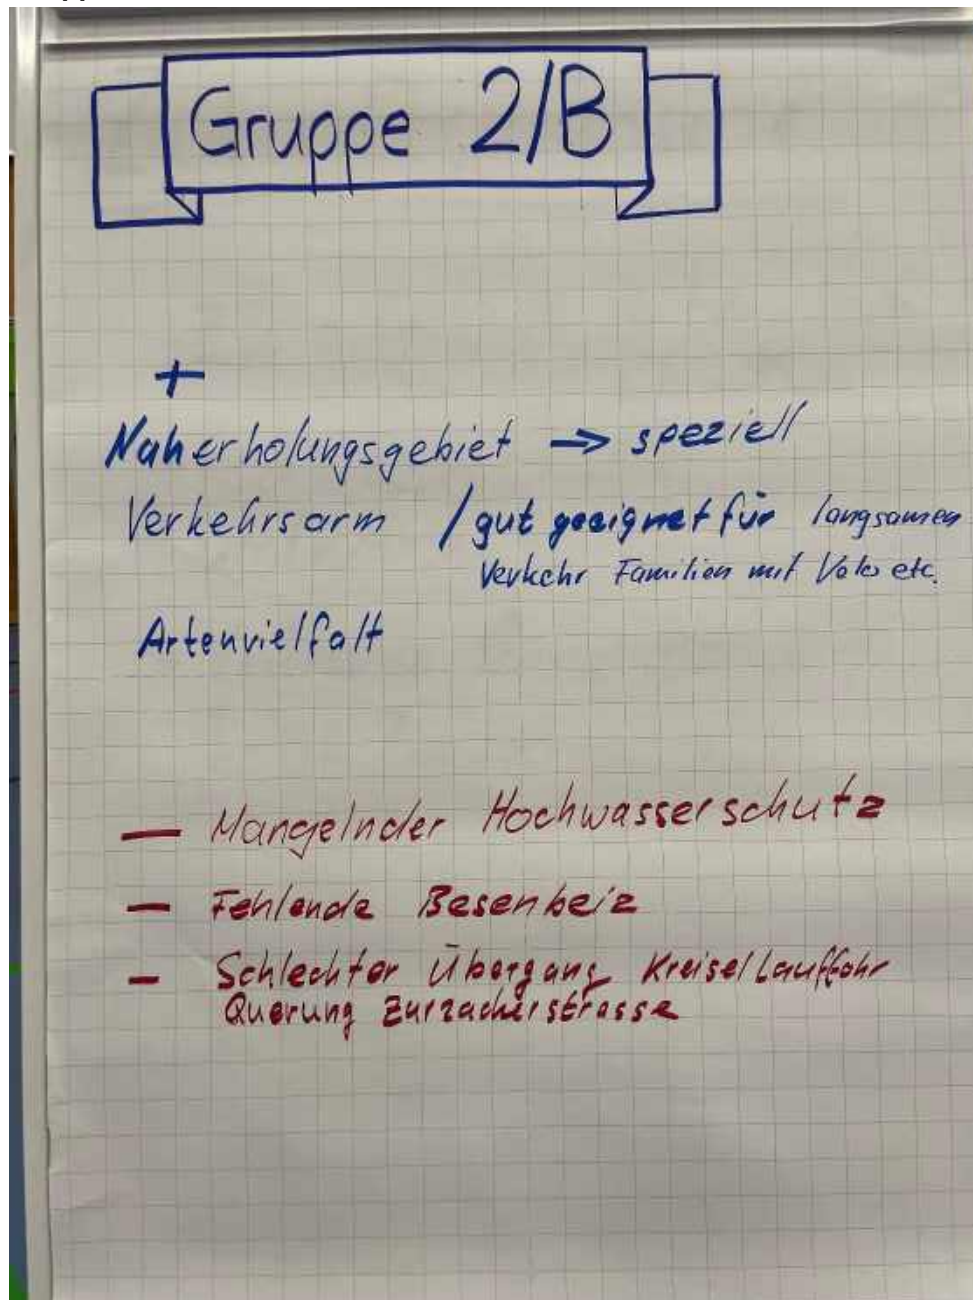 Gruppe 2/B
+
Naherholungsgebiet → speziell
Verkehrsarm / gut geeignet für langsamen
Verkehr Familien mit Velos etc.
Artenvielfalt
— Mangelnder Hochwasserschutz
— Fehlende Besenbeiz
— Schlechter Übergang Kreisel Lauffohr
Querung Zurzacherstrasse